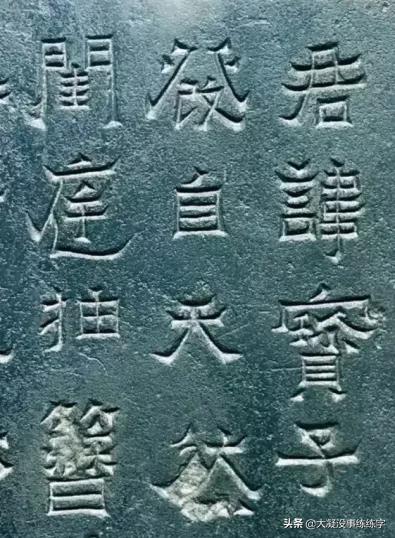 君諱寶子
發自天然
閨庭抽簪
头条 @大凝没事练练字